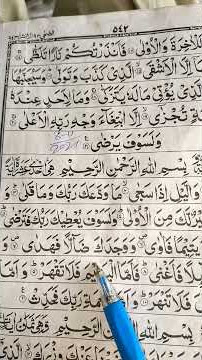 ۵۴۲
لَلْاٰخِرَةَ وَالْاُوْلٰى ۝ فَاَنْذَرْتُكُمْ نَارًا تَلَظّٰى ۝
اِلَّا الْاَشْقَى ۝ الَّذِيْ كَذَّبَ وَتَوَلّٰى ۝ وَسَيُجَنَّبُهَا
الَّذِيْ يُؤْتِيْ مَالَهٗ يَتَزَكّٰى ۝ وَمَا لِاَحَدٍ عِنْدَهٗ
تُجْزٰى ۝ اِلَّا ابْتِغَآءَ وَجْهِ رَبِّهِ الْاَعْلٰى ۝
وَلَسَوْفَ يَرْضٰى ۝
بِسْمِ اللّٰهِ الرَّحْمٰنِ الرَّحِيْمِ
وَالَّيْلِ اِذَا سَجٰى ۝ مَا وَدَّعَكَ رَبُّكَ وَمَا قَلٰى ۝ وَ
لَّكَ مِنَ الْاُوْلٰى ۝ وَلَسَوْفَ يُعْطِيْكَ رَبُّكَ فَتَرْضٰى ۝
يَتِيْمًا فَاٰوٰى ۝ وَوَجَدَكَ ضَآلًّا فَهَدٰى ۝ وَ
فَاَغْنٰى ۝ فَاَمَّا فَلَا تَقْهَرْ ۝ وَاَمَّا
فَلَا تَنْهَرْ ۝ رَبِّكَ فَحَدِّثْ ۝
بِسْمِ اللّٰهِ الرَّحْمٰنِ الرَّحِيْمِ